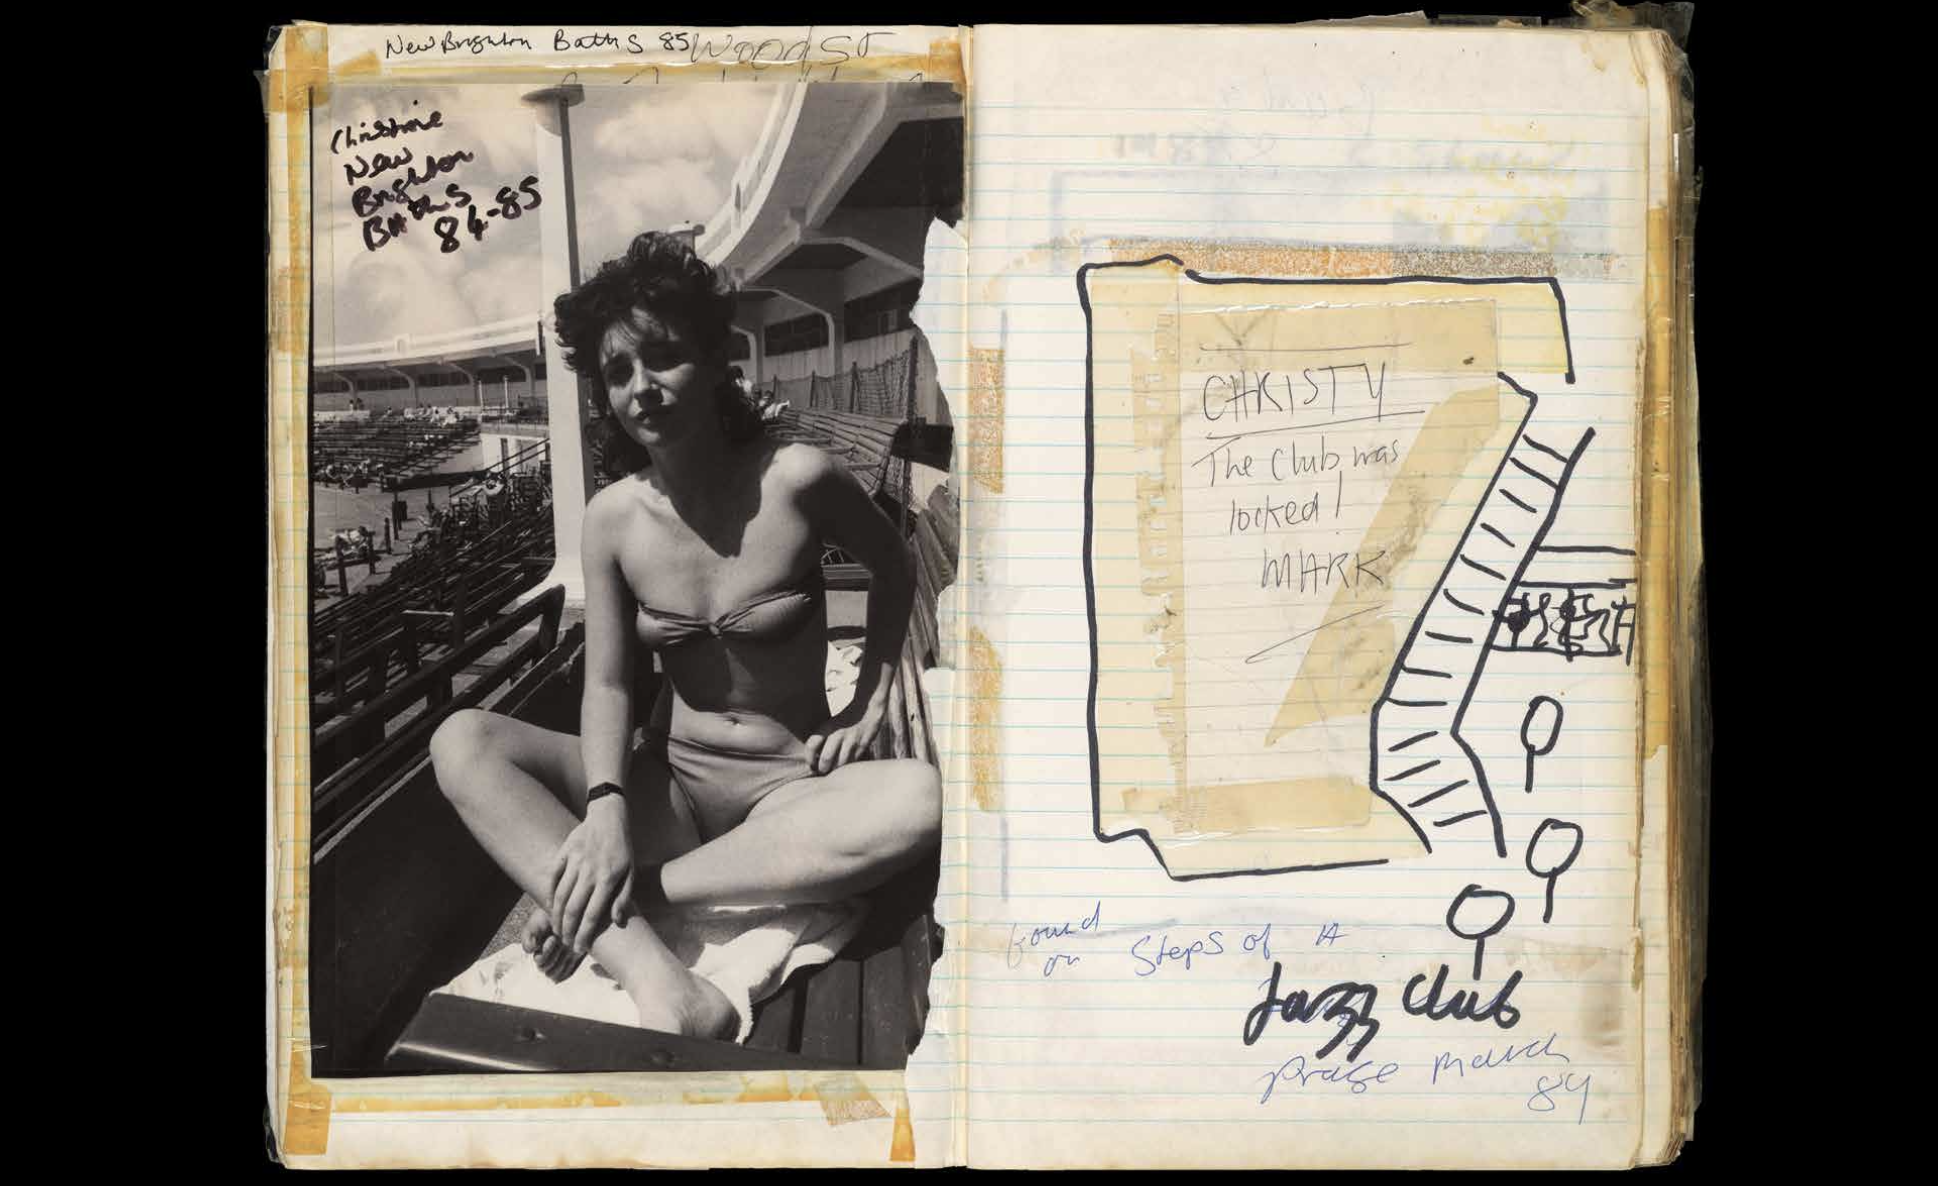 New Brighton Baths 85
Wood St
Christine
New
Brighton
BAths
84-85
CHRISTY
The Club was
locked!
MARK
found
on Steps of A
Jazz Club
prage march
84